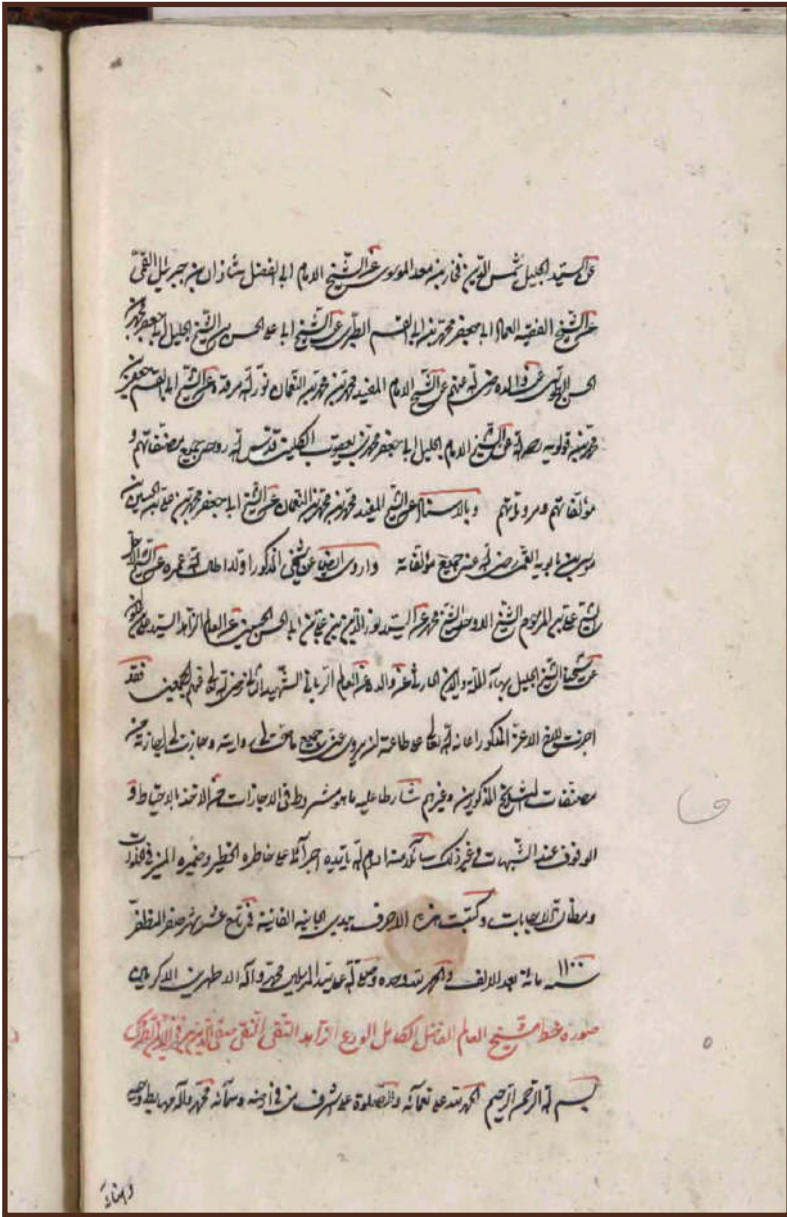 عن السيد الجليل شمس الدين فخار بن معد الموسوي عن الشيخ الامام ابي الفضل شاذان بن جبرئيل القمي
عن الشيخ الفقيه العماد ابي جعفر محمد بن ابي القسم الطبري عن الشيخ ابي علي الحسن بن الشيخ الجليل ابي جعفر محمد بن
الحسن الطوسي عن والده رضي الله عنهم عن الشيخ الامام المفيد محمد بن محمد بن النعمان نور الله مرقده عن الشيخ ابي القسم جعفر بن
محمد بن قولويه رحمه الله عن الشيخ الامام الجليل ابي جعفر محمد بن يعقوب الكليني قدس الله روحه جميع مصنفاتهم و
مؤلفاتهم ومروياتهم وبالاسناد عن الشيخ المفيد محمد بن محمد بن النعمان عن الشيخ ابي جعفر محمد بن علي بن الحسين بن
موسى بن بابويه القمي رضي الله عنه جميع مؤلفاته واروي ايضا عن شيخي المذكور اولا اطال الله عمره عن الشيخ
الشيخ علي بن المرحوم الشيخ الاوحد الشيخ محمد عن السيد نور الدين بن علي بن ابي الحسن الحسيني عن العالم الزاهد السيد
عن شيخنا الشيخ الجليل بهاء الملة والدين الحارثي عن والده عن العالم الرباني الشهيد الثاني رضي الله تعالى عنهم اجمعين فقد
اجزت للاخ الاعز المذكور اعانه الله تعالى على طاعته ان يروي عني جميع ما صحت لي روايته وجازت لي اجازته من
مصنفات المشايخ المذكورين وغيرهم شارطا عليه ما هو مشروط في الاجازات من الاخذ بالاحتياط و
الوقوف عند الشبهات وغير ذلك سائلا منه ادام الله تاييده اجرائي على خاطره الخطير وضميره المنير في الخلوات
ومظان الاجابات وكتبت هذه الاحرف بيدي الجانية الفانية في تاسع عشر شهر صفر المظفر
سنه ١١٠٠ مائة بعد الالف والحمد لله وحده وصلى الله على سيد المرسلين محمد واله الاطهرين الاكرمين
صورة خط شيخ العالم الفاضل الكامل الورع الزاهد التقي النقي صفي الدين بن فخر الدين الطريحي
بسم الله الرحمن الرحيم الحمد لله على نعمائه والصلوة على اشرف من في ارضه وسمائه محمد واله